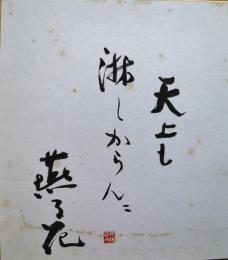 天上も
淋しからんに
燕子花